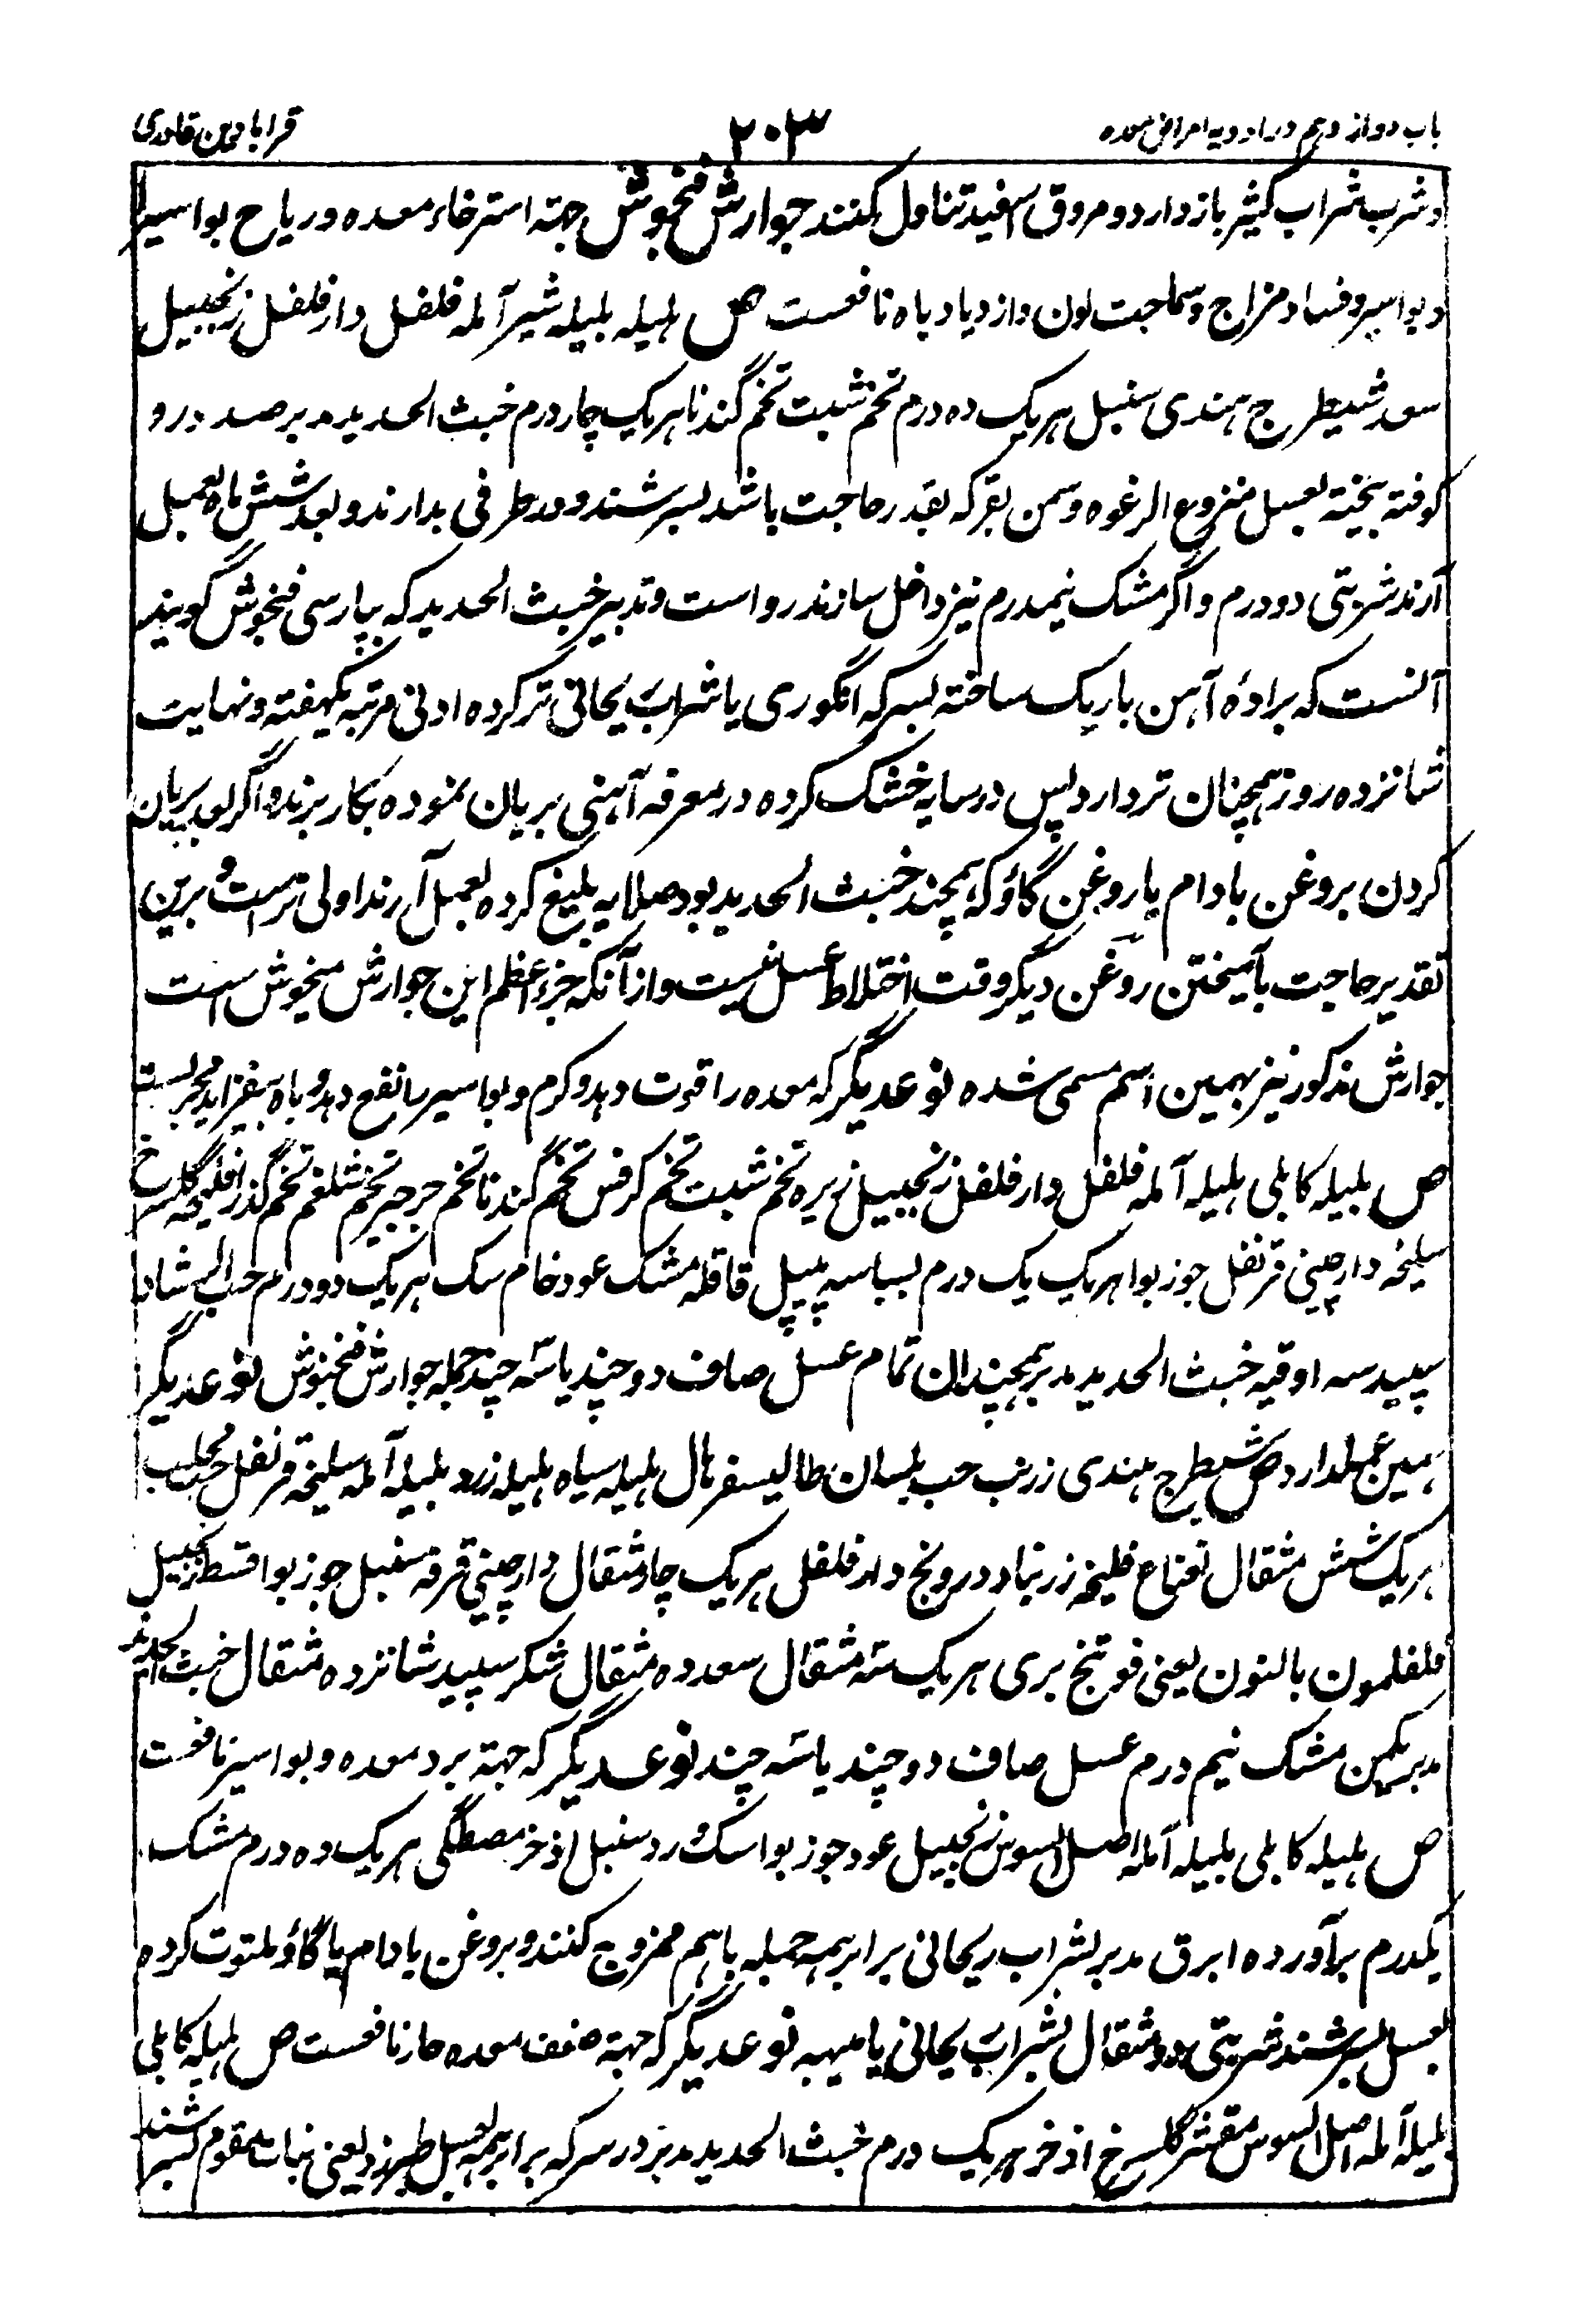 باب دوازدهم در ادویه امراض معده
۲۰۳
قرابادین قادری
و شرب شراب کثیر باز دارد و مروق اسفید تناول کنند جوارش فنجوش جهة استرخاء معده و ریاح بواسیر
و بواسیر و فساد مزاج و سماجت لون و ازدیاد باه نافعست ص هلیله بلیله شیر آمله فلفل دار فلفل زنجبیل
سعد شیطرج هندی سنبل هر یک ده درم تخم شبت تخم گندنا هر یک چار درم خبث الحدید مدبر صد درو
کوفته بیخته بعسل منزوع الرغوه و سمن بقر که بقدر حاجت باشد بسرشند و در ظرفی بدارند و بعد شش ماه بعمل
آرند شربتی دو درم و اگر مشک نیمدرم نیز داخل سازند رواست و تدبیر خبث الحدید که بپارسی فنجوش گویند
آنست که براده آهن باریک ساخته بسرکه انگوری یا شراب ریحانی تر کرده ادنی مرتبه یکهفته و نهایت
شانزده روز همچنان تر دارد پس در سایه خشک کرده در مغرفه آهنی بریان نموده بکار برند و اگر بعد بریان
کردن بروغن بادام یا روغن گاؤ که همچند خبث الحدید بود صلایه بلیغ کرده بعمل آرند اولی تر است و برین
تقدیر حاجت بآمیختن روغن دیگر وقت اختلاط عسل نیست و از آنکه جزء اعظم این جوارش میخوش است
جوارش مذکور نیز بهمین اسم مسمی شده نوعدیگر که معده را قوت دهد و کرم و بواسیر را نفع دهد و باه بیفزاید مجربست
ص بلیله کابلی هلیله آمله فلفل دار فلفل زنجبیل زیره تخم شبت تخم کرفس تخم گندنا تخم جرجیر تخم شلغم تخم گذر افلیحه گلسرخ
سلیخه دارچینی قرنفل جوزبوا هر یک یک درم بسباسه پیپل قاقله مشک عود خام سک هر یک دو درم حب الرشاد
سپید سه اوقیه خبث الحدید مدبر همچندان تمام عسل صاف دو چند یا سه چند جمله جوارش فنجنوش نوعدیگر
همین عمل دارد ص شیطرج هندی زرنب حب بلسان طالیسفر هال هلیله سیاه هلیله زرد بلیله آمله سلیخه قرنفل حب محلب
هر یک شش مثقال نعناع فلیخه زرنباد درونج دار فلفل هر یک چار مثقال دارچینی قرفه سنبل جوزبوا قسط زنجبیل
فلفلمون بالنون یعنی فوتنج بری هر یک سه مثقال سعد ده مثقال شکر سپید شانزده مثقال خبث الحدید
مدبر یکمن مشک نیم درم عسل صاف دو چند یا سه چند نوعدیگر که جهة برد معده و بواسیر نافعست
ص هلیله کابلی بلیله آمله اصل السوس زنجبیل عود جوزبوا سک ورد سنبل اذخر مصطگی هر یک ده درم مشک
یکدرم برآورده ابرق مدبر بشراب ریحانی برابر همه جمله باهم ممزوج کنند و بروغن بادام یا گاؤ ملتوت کرده
بعسل بسرشند شربتی دو مثقال بشراب ریحانی یا میبه نوعدیگر که جهة ضعف معده حار نافعست ص هلیله کابلی
بلیله آمله اصل السوس مقشر گلسرخ اذخر هر یک درم خبث الحدید مدبر در سرکه برابر همه بعسل طبرزد یعنی نبات مقوم بسرشند